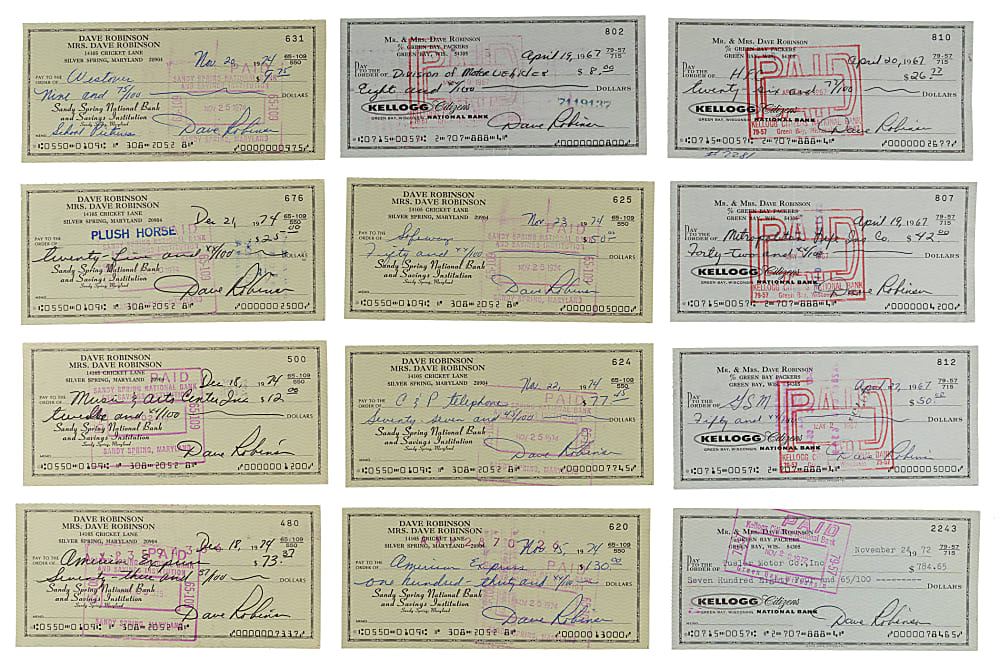 DAVE ROBINSON
MRS. DAVE ROBINSON
14105 CRICKET LANE
SILVER SPRING, MARYLAND 20904
631
Nov. 20, 1974
65-109
550
PAY TO THE
ORDER OF
Westover
$9.75
Nine and 75/100
DOLLARS
Sandy Spring National Bank
and Savings Institution
Sandy Spring, Maryland
MEMO
School Pictures
Dave Robinson
NOV 25 1974
⑆0550⑉0109⑆ 308⑉2052 8⑈ ⑈0000000975⑈
MR. & MRS. DAVE ROBINSON
% GREEN BAY PACKERS
GREEN BAY, WIS. 54305
802
April 19, 1967
79-57
715
PAY
TO THE
ORDER OF
Division of Motor Vehicles
$8.00
Eight and xx/100
DOLLARS
7119137
KELLOGG Citizens
GREEN BAY, WISCONSIN NATIONAL BANK
Dave Robinson
⑆0715⑉0057⑆ 2⑈707⑈888⑈4⑈ ⑈0000000800⑈
MR. & MRS. DAVE ROBINSON
% GREEN BAY PACKERS
GREEN BAY, WIS. 54305
810
April 20, 1967
79-57
715
PAY
TO THE
ORDER OF
HFC
$26.77
twenty six and 77/100
DOLLARS
PAID
KELLOGG Citizens
NATIONAL BANK
KELLOGG CITIZENS NATIONAL BANK
79-57 Green Bay, Wisconsin
Dave Robinson
⑆0715⑉0057⑆ 2⑈707⑈888⑈4⑈ ⑈0000002677⑈
DAVE ROBINSON
MRS. DAVE ROBINSON
14105 CRICKET LANE
SILVER SPRING, MARYLAND 20904
676
Dec 21, 1974
65-109
550
PAY TO THE
ORDER OF
PLUSH HORSE
$25.00
twenty-five and xx/100
DOLLARS
Sandy Spring National Bank
and Savings Institution
Sandy Spring, Maryland
MEMO
Dave Robinson
⑆0550⑉0109⑆ 308⑉2052 8⑈ ⑈0000002500⑈
DAVE ROBINSON
MRS. DAVE ROBINSON
14105 CRICKET LANE
SILVER SPRING, MARYLAND 20904
625
Nov. 23, 1974
65-109
550
PAY TO THE
ORDER OF
Safeway
$50.00
Fifty and xx/100
DOLLARS
PAID
NOV 25 1974
Sandy Spring National Bank
and Savings Institution
Sandy Spring, Maryland
MEMO
Dave Robinson
⑆0550⑉0109⑆ 308⑉2052 8⑈ ⑈0000005000⑈
MR. & MRS. DAVE ROBINSON
% GREEN BAY PACKERS
GREEN BAY, WIS. 54305
807
April 19, 1967
79-57
715
PAY
TO THE
ORDER OF
Metropolitan Life Ins Co.
$42.00
Forty-two and xx/100
DOLLARS
PAID
KELLOGG Citizens
GREEN BAY, WISCONSIN NATIONAL BANK
KELLOGG CITIZENS NATIONAL BANK
79-57 Green Bay, Wisconsin
Dave Robinson
⑆0715⑉0057⑆ 2⑈707⑈888⑈4⑈ ⑈0000004200⑈
DAVE ROBINSON
MRS. DAVE ROBINSON
14105 CRICKET LANE
SILVER SPRING, MARYLAND 20904
500
Dec 18, 1974
65-109
550
PAY TO THE
ORDER OF
Music & Arts Center, Inc.
$12.00
twelve and xx/100
DOLLARS
PAID
SANDY SPRING NATIONAL BANK
Sandy Spring National Bank
and Savings Institution
Sandy Spring, Maryland
MEMO
SANDY SPRING, MARYLAND
Dave Robinson
⑆0550⑉0109⑆ 308⑉2052 8⑈ ⑈0000001200⑈
DAVE ROBINSON
MRS. DAVE ROBINSON
14105 CRICKET LANE
SILVER SPRING, MARYLAND 20904
624
Nov. 22, 1974
65-109
550
PAY TO THE
ORDER OF
C & P telephone
$77.45
Seventy seven and 45/100
DOLLARS
PAID
NOV 25 1974
Sandy Spring National Bank
and Savings Institution
Sandy Spring, Maryland
MEMO
Dave Robinson
⑆0550⑉0109⑆ 308⑉2052 8⑈ ⑈0000007745⑈
MR. & MRS. DAVE ROBINSON
% GREEN BAY PACKERS
GREEN BAY, WIS. 54305
812
April 27, 1967
79-57
715
PAY
TO THE
ORDER OF
GSM
$50.00
Fifty and xx/100
DOLLARS
PAID
KELLOGG Citizens
GREEN BAY, WISCONSIN NATIONAL BANK
79-57 Green Bay, Wisconsin 79-57
Dave Robinson
⑆0715⑉0057⑆ 2⑈707⑈888⑈4⑈ ⑈0000005000⑈
DAVE ROBINSON
MRS. DAVE ROBINSON
14105 CRICKET LANE
SILVER SPRING, MARYLAND 20904
480
Dec 18, 1974
65-109
550
PAY TO THE
ORDER OF
American Express
$73.37
Seventy-three and 37/100
DOLLARS
PAID
Sandy Spring National Bank
and Savings Institution
Sandy Spring, Maryland
MEMO
Dave Robinson
⑆0550⑉0109⑆ 308⑉2052 8⑈ ⑈0000007337⑈
DAVE ROBINSON
MRS. DAVE ROBINSON
14105 CRICKET LANE
SILVER SPRING, MARYLAND 20904
620
1974
65-109
550
PAY TO THE
ORDER OF
American Express
$130.00
One hundred-thirty and xx/100
DOLLARS
Sandy Spring National Bank
and Savings Institution
Sandy Spring, Maryland
MEMO
Dave Robinson
⑆0550⑉0109⑆ 308⑉2052 8⑈ ⑈0000013000⑈
MR. & MRS. DAVE ROBINSON
% GREEN BAY PACKERS
GREEN BAY, WIS. 54305
2243
November 24 1972
79-57
715
PAY
TO THE
ORDER OF
Kuehler Motor Co., Inc
$784.65
Seven Hundred Eighty and 65/100
DOLLARS
PAID
Kellogg Citizens National Bank
Green Bay, Wisconsin
KELLOGG Citizens
GREEN BAY, WISCONSIN NATIONAL BANK
Dave Robinson
⑆0715⑉0057⑆ 2⑈707⑈888⑈4⑈ ⑈0000078465⑈